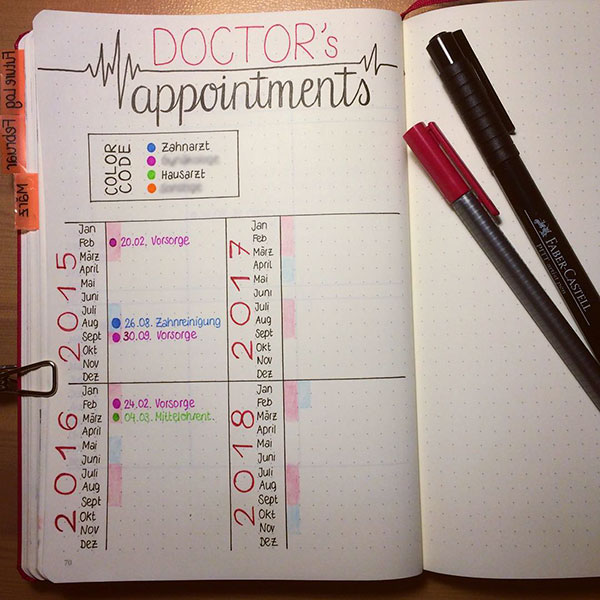 DOCTOR's
appointments
Future Log
Februar
März
COLOR
CODE
Zahnarzt
Hausarzt
2015
Jan
Feb 20.02. Vorsorge
März
April
Mai
Juni
Juli
Aug 26.08. Zahnreinigung
Sept 30.09. Vorsorge
Okt
Nov
Dez
2017
Jan
Feb
März
April
Mai
Juni
Juli
Aug
Sept
Okt
Nov
Dez
2016
Jan
Feb 24.02. Vorsorge
März 04.03. Mittelohrent.
April
Mai
Juni
Juli
Aug
Sept
Okt
Nov
Dez
2018
Jan
Feb
März
April
Mai
Juni
Juli
Aug
Sept
Okt
Nov
Dez
70
FABER-CASTELL
PITT